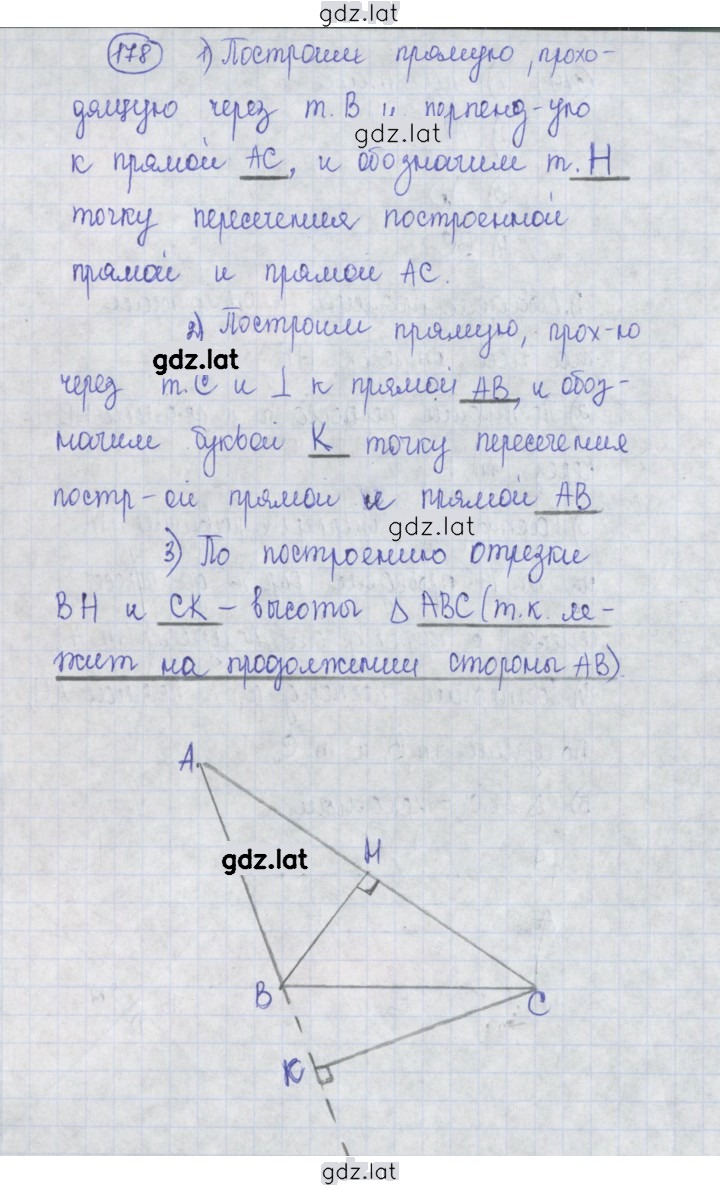 gdz.lat
178 1) Построим прямую, прохо-
дящую через т. В и перпенд-ую
gdz.lat
к прямой АС, и обозначим т. Н
точку пересечения построенной
прямой и прямой АС.
2) Построим прямую, прох-ю
gdz.lat
через т. С и ⊥ к прямой АВ, и обоз-
начим буквой К точку пересечения
постр-ой прямой и прямой АВ
gdz.lat
3) По построению отрезки
ВН и СК – высоты △ АВС (т.к. ле-
жит на продолжении стороны АВ).
А
Н
gdz.lat
В
С
К
gdz.lat